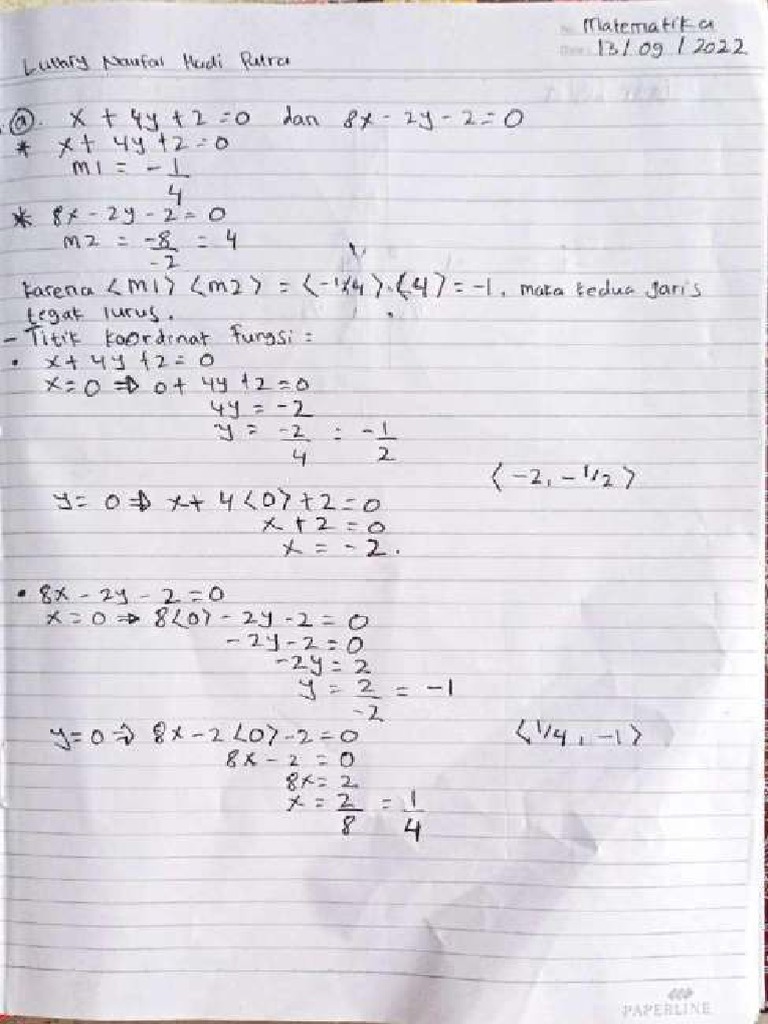 Matematika
No.
Date: 13/09/2022
Luthfy Naufal Hadi Putra
a. x + 4y + 2 = 0 dan 8x - 2y - 2 = 0
* x + 4y + 2 = 0
m1 = -1/4
* 8x - 2y - 2 = 0
m2 = -8/-2 = 4
Karena (m1) (m2) = (-1/4).(4) = -1, maka kedua garis
tegak lurus.
- Titik koordinat fungsi :
• x + 4y + 2 = 0
x = 0 ⇒ 0 + 4y + 2 = 0
4y = -2
y = -2/4 = -1/2
(-2, -1/2)
y = 0 ⇒ x + 4(0) + 2 = 0
x + 2 = 0
x = -2.
• 8x - 2y - 2 = 0
x = 0 ⇒ 8(0) - 2y - 2 = 0
-2y - 2 = 0
-2y = 2
y = 2/-2 = -1
y = 0 ⇒ 8x - 2(0) - 2 = 0
(1/4, -1)
8x - 2 = 0
8x = 2
x = 2/8 = 1/4
PAPERLINE